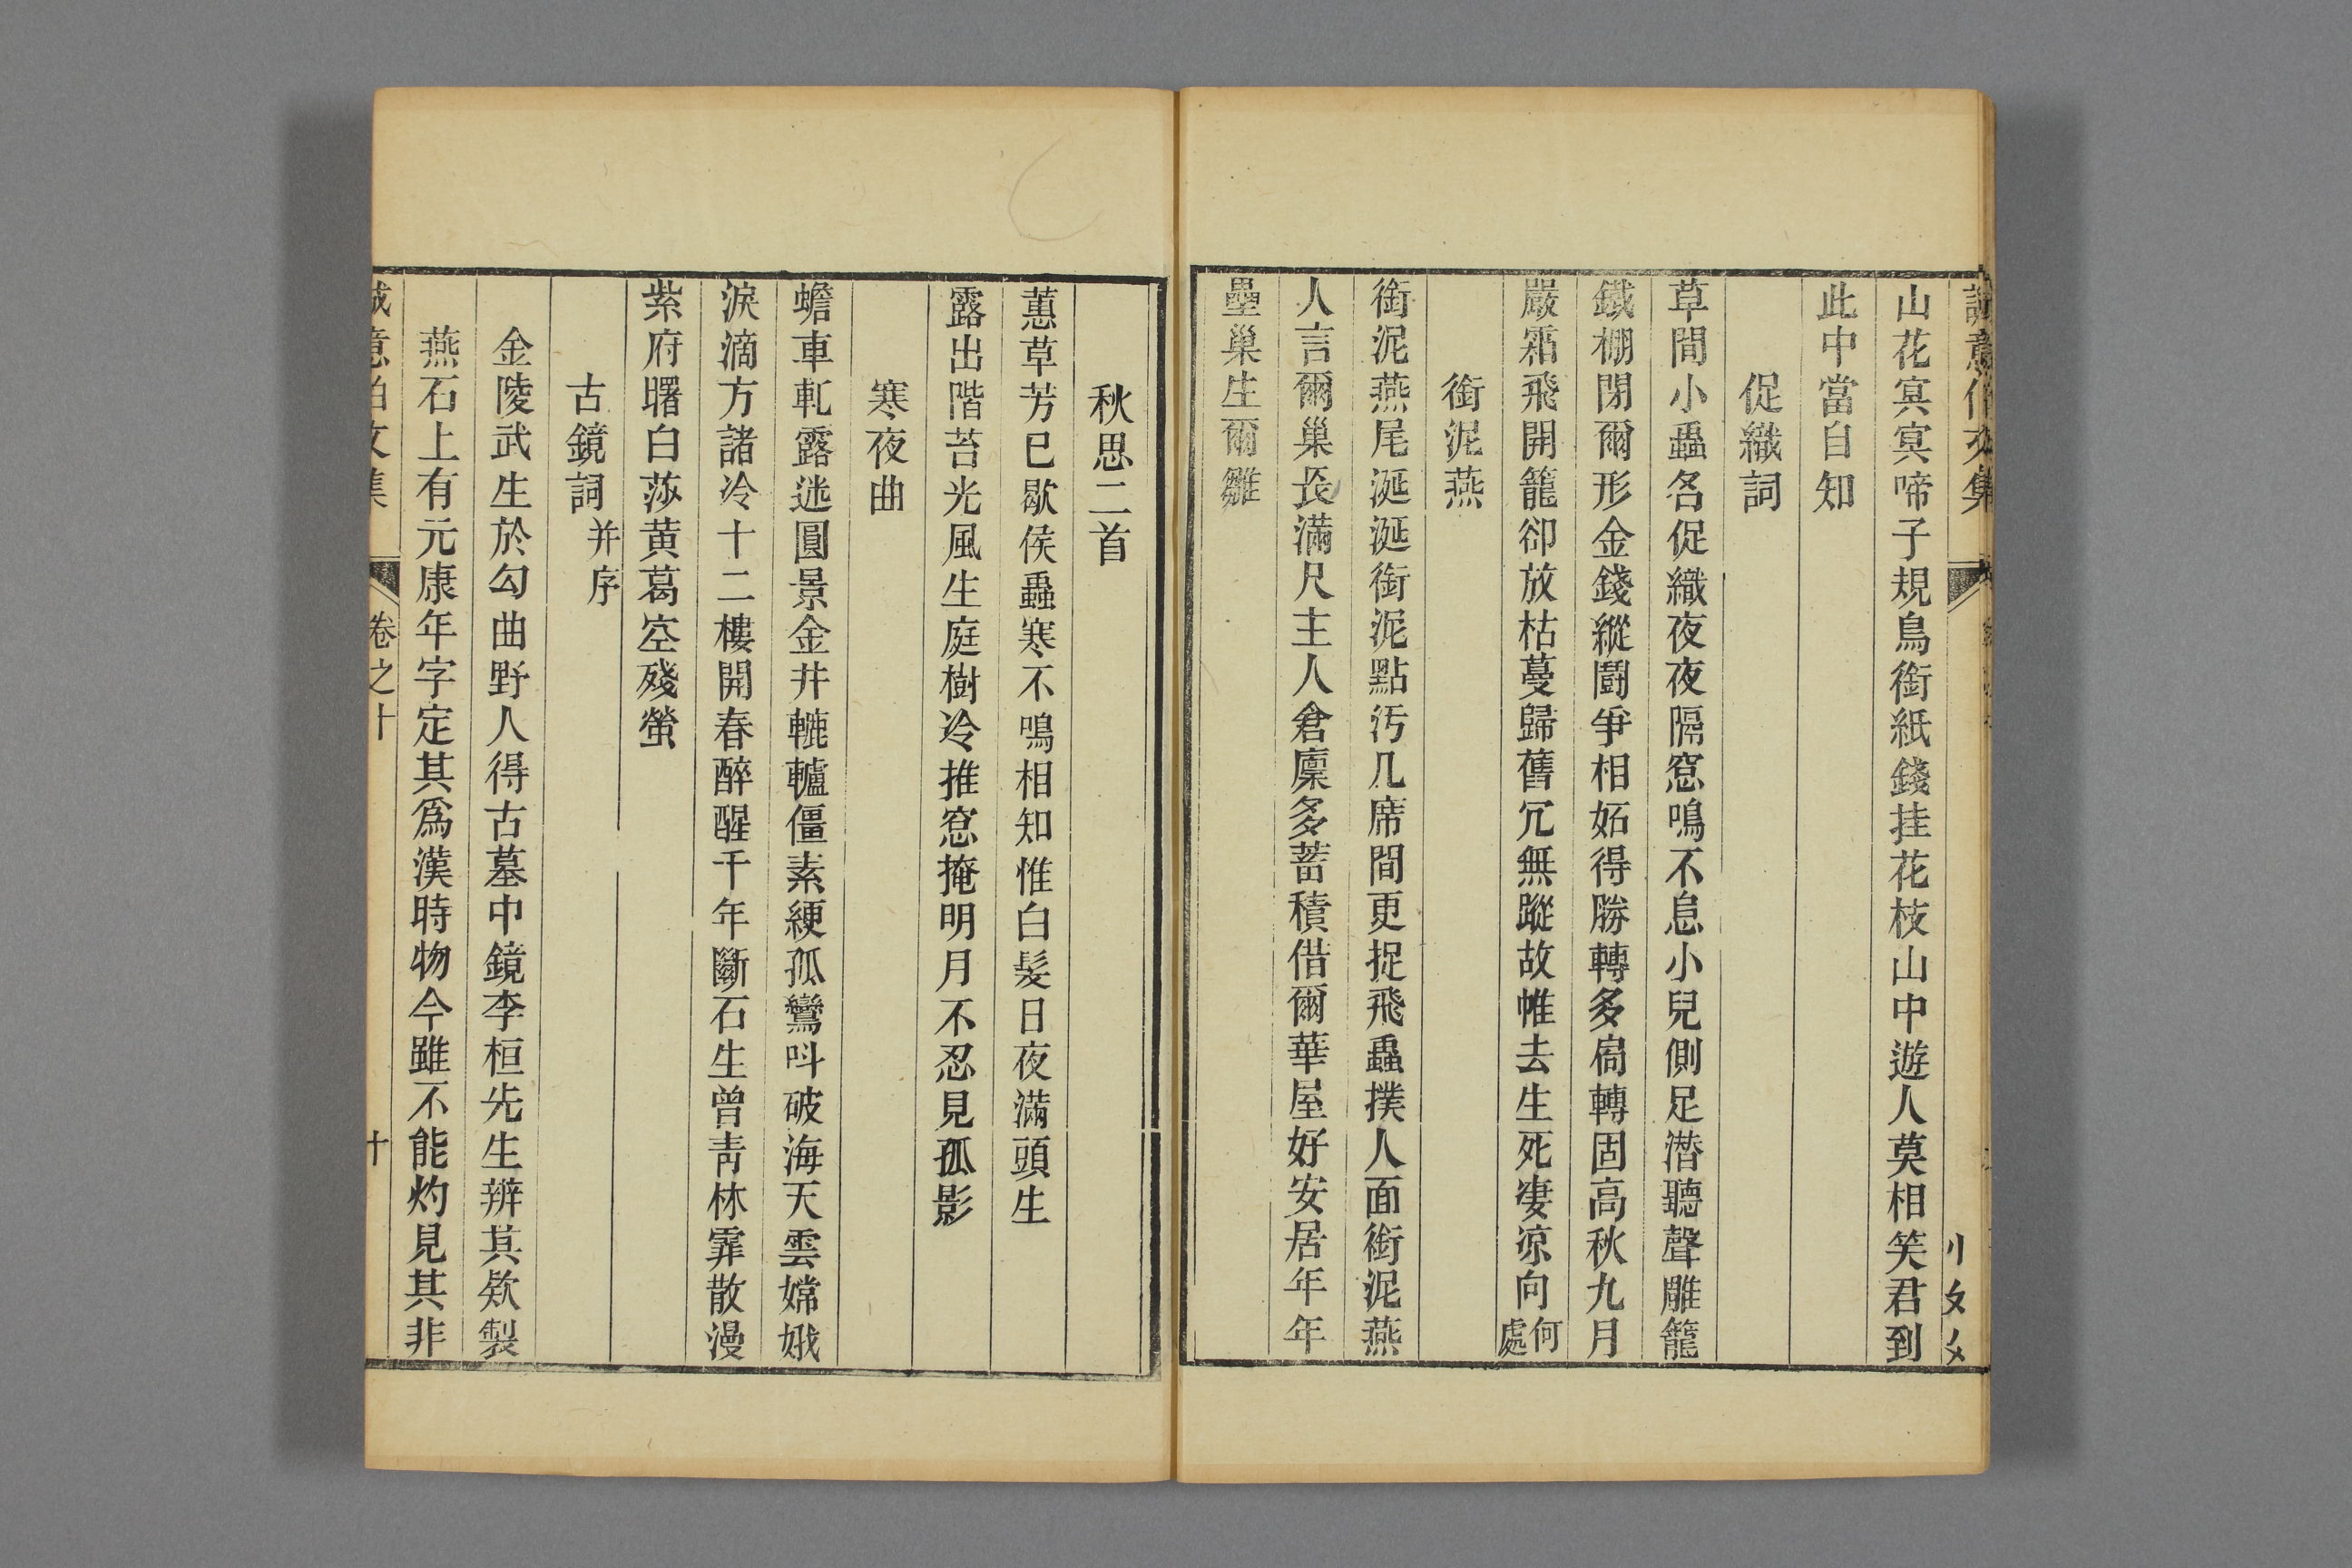 山花冥冥啼子規鳥銜紙錢挂花枝山中遊人莫相笑君到
此中當自知
促織詞
草間小蟲名促織夜夜隔窓鳴不息小兒側足潛聽聲雕籠
鐵棚閉爾形金錢縱鬭爭相妬得勝轉多扃轉固高秋九月
嚴霜飛開籠卻放枯蔓歸舊冗無蹤故帷去生死凄凉向何處
銜泥燕
銜泥燕尾涎涎銜泥點汚几席間更捉飛蟲撲人面銜泥燕
人言爾巢長滿尺主人倉廩多蓄積借爾華屋好安居年年
壘巢生爾雛
秋思二首
蕙草芳已歇侯蟲寒不鳴相知惟白髮日夜滿頭生
露出階苔光風生庭樹冷推窓掩明月不忍見孤影
寒夜曲
蟾車軋露迷圓景金井轆轤僵素綆孤鸞呌破海天雲嫦娥
淚滴方諸冷十二樓開春醉醒千年斷石生曾靑林霏散漫
紫府曙白莎黄葛啼殘螢
古鏡詞并序
金陵武生於勾曲野人得古墓中鏡李桓先生辨其欵製
燕石上有元康年字定其爲漢時物今雖不能灼見其非
誠意伯文集 卷之十 十